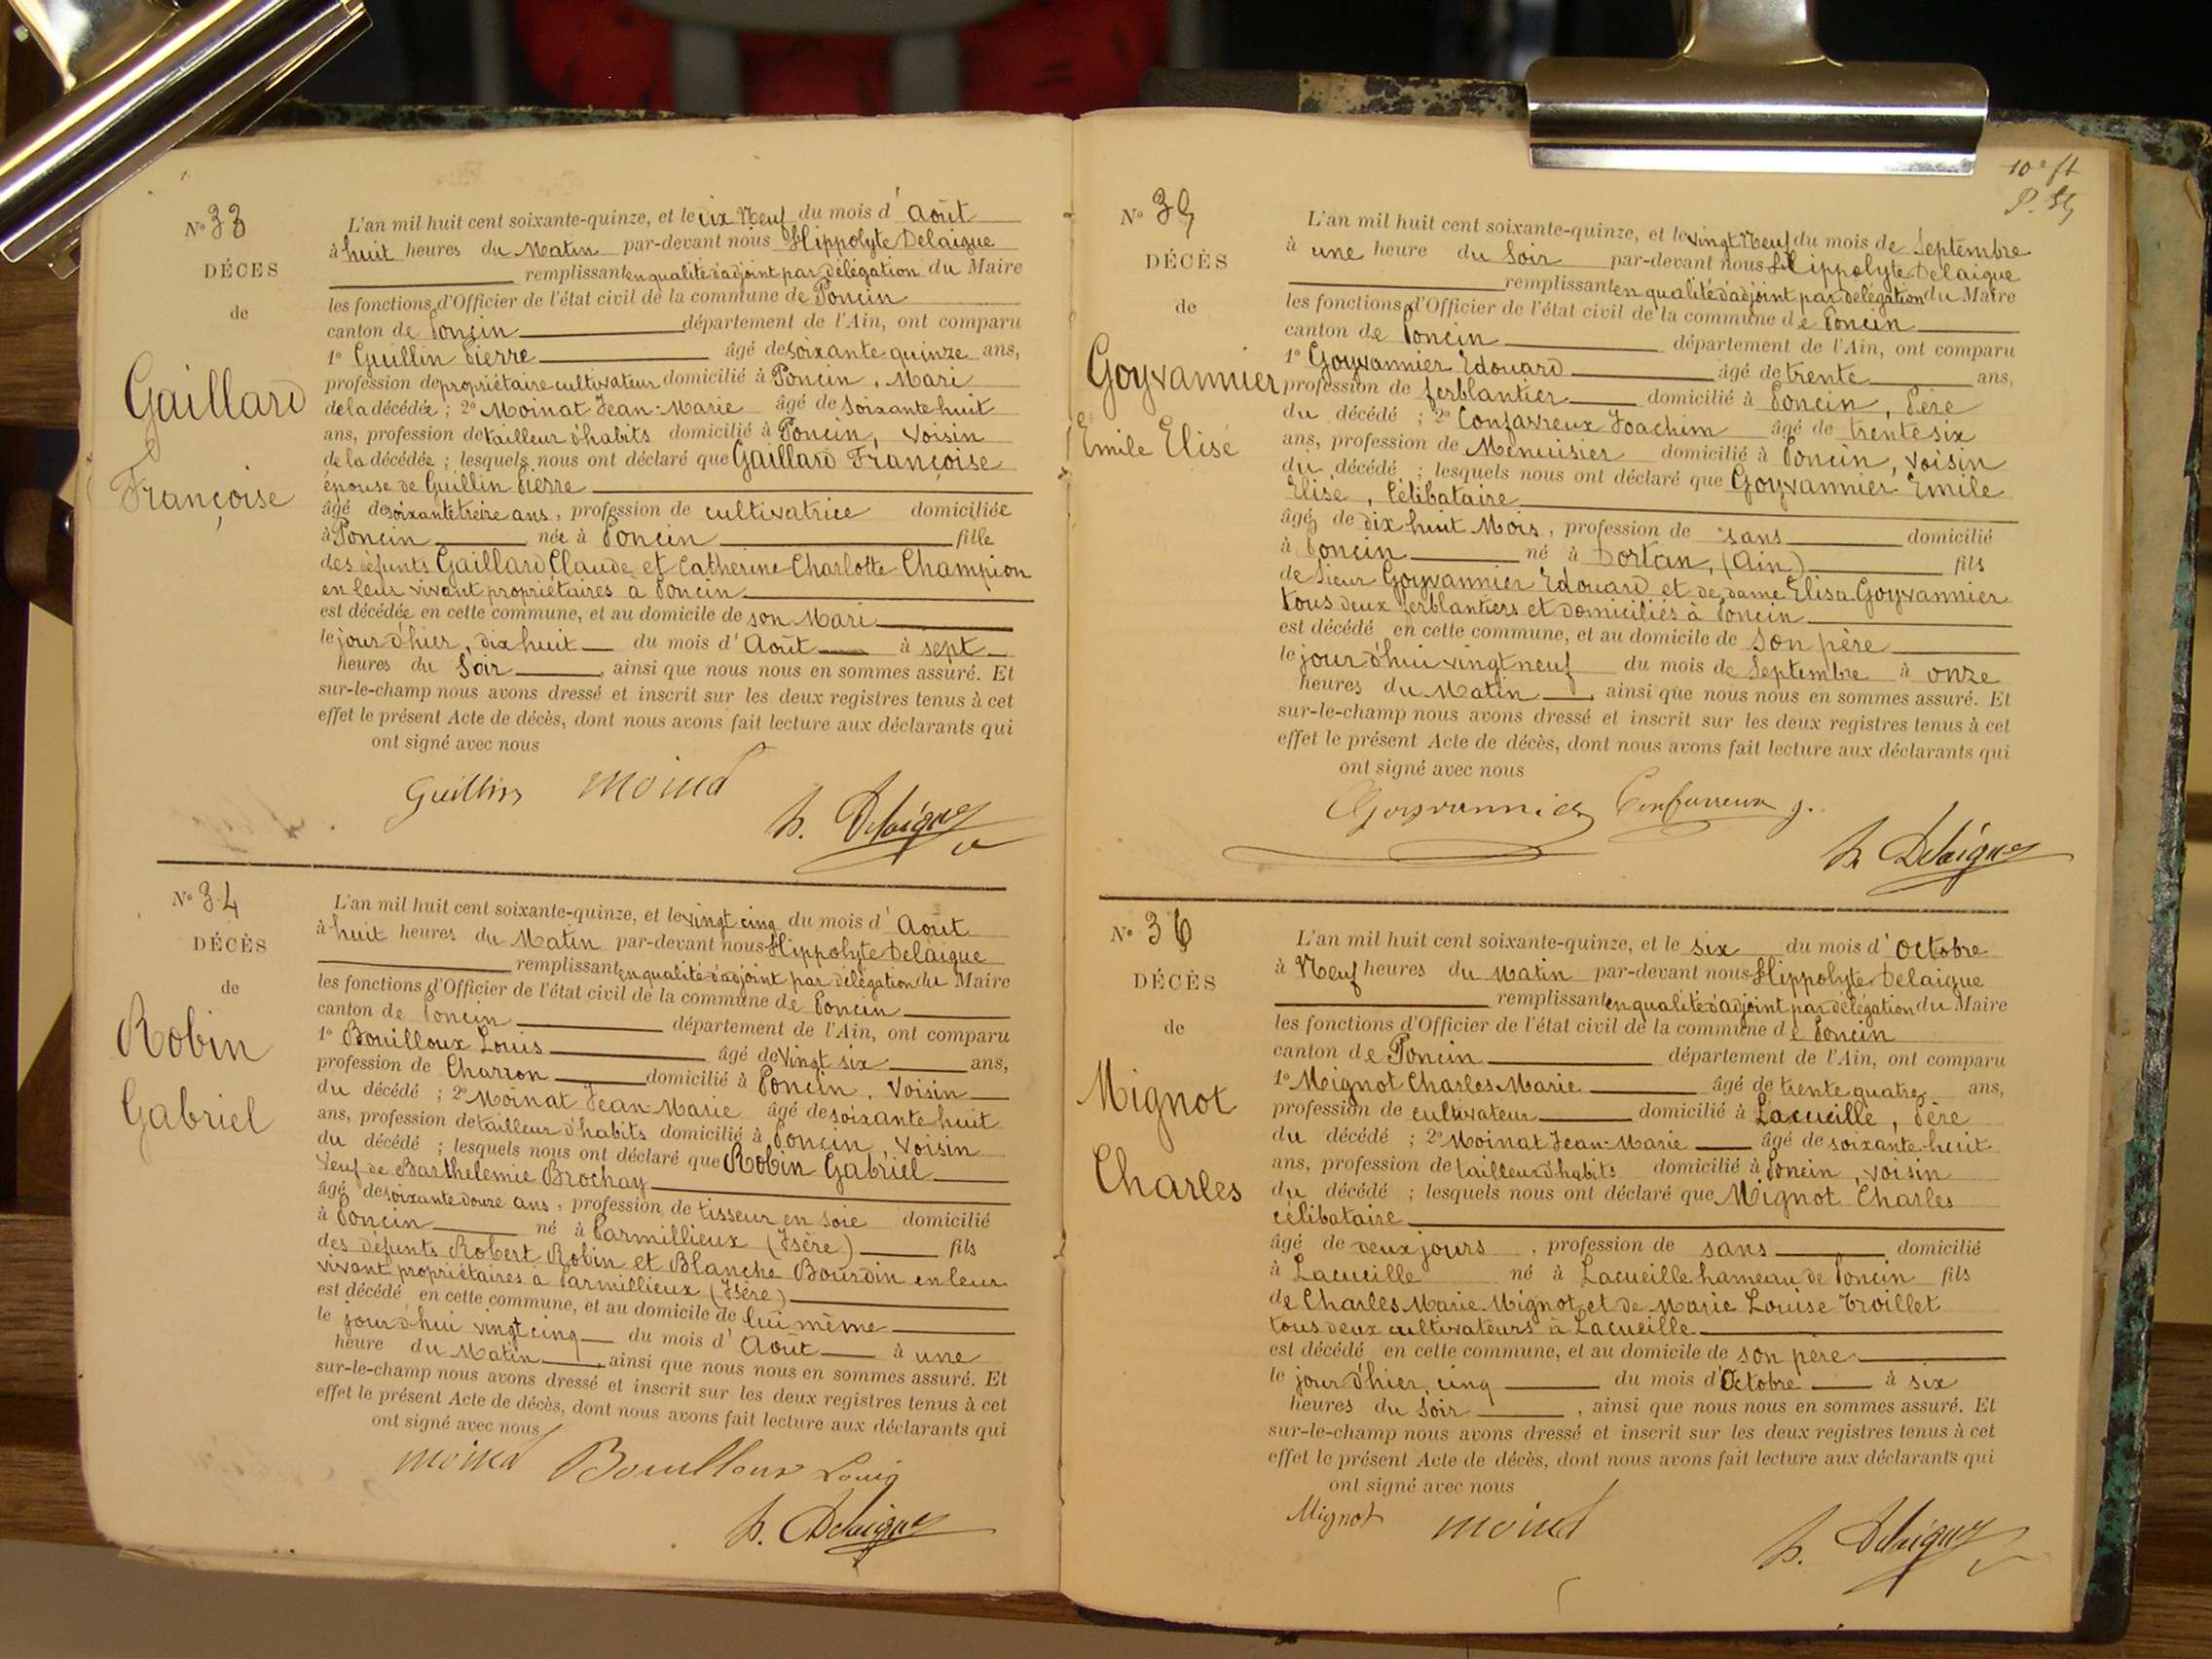 N° 33
DÉCÈS
de
Gaillard
Françoise
L'an mil huit cent soixante-quinze, et le dix Neuf du mois d'Août
à huit heures du Matin par-devant nous Hippolyte Delaigue
remplissant en qualité d'adjoint par délégation du Maire
les fonctions d'Officier de l'état civil de la commune de Poncin
canton de Poncin département de l'Ain, ont comparu
1° Guillin Pierre âgé de soixante quinze ans,
profession de propriétaire cultivateur domicilié à Poncin, Mari
de la décédée ; 2° Moinat Jean-Marie âgé de soixante huit
ans, profession de tailleur d'habits domicilié à Poncin, voisin
de la décédée ; lesquels nous ont déclaré que Gaillard Françoise
épouse de Guillin Pierre
âgé de soixante treize ans, profession de cultivatrice domiciliée
à Poncin née à Poncin fille
des défunts Gaillard Claude et Catherine Charlotte Champion
en leur vivant propriétaires à Poncin
est décédée en cette commune, et au domicile de son Mari
le jour d'hier, dix huit du mois d'Août à sept
heures du Soir, ainsi que nous nous en sommes assuré. Et
sur-le-champ nous avons dressé et inscrit sur les deux registres tenus à cet
effet le présent Acte de décès, dont nous avons fait lecture aux déclarants qui
ont signé avec nous
Guillin Moinat
h. Delaigue
N° 34
DÉCÈS
de
Robin
Gabriel
L'an mil huit cent soixante-quinze, et le vingt cinq du mois d'Août
à huit heures du Matin par-devant nous Hippolyte Delaigue
remplissant en qualité d'adjoint par délégation du Maire
les fonctions d'Officier de l'état civil de la commune de Poncin
canton de Poncin département de l'Ain, ont comparu
1° Bouilloux Louis âgé de vingt six ans,
profession de Charron domicilié à Poncin, Voisin
du décédé ; 2° Moinat Jean-Marie âgé de soixante huit
ans, profession de tailleur d'habits domicilié à Poncin, Voisin
du décédé ; lesquels nous ont déclaré que Robin Gabriel
Veuf de Barthelemie Brochay
âgé de soixante douze ans, profession de tisseur en soie domicilié
à Poncin né à Parmillieux (Isère) fils
des défunts Robert Robin et Blanche Bourdin en leur
vivant propriétaires à Parmillieux (Isère)
est décédé en cette commune, et au domicile de lui même
le jour d'hui vingt cinq du mois d'Août à une
heure du Matin, ainsi que nous nous en sommes assuré. Et
sur-le-champ nous avons dressé et inscrit sur les deux registres tenus à cet
effet le présent Acte de décès, dont nous avons fait lecture aux déclarants qui
ont signé avec nous
Moinat Bouilloux Louis
h. Delaigue
10e ft
N° 35
DÉCÈS
de
Goyvannier
Emile Elisé
L'an mil huit cent soixante-quinze, et le vingt Neuf du mois de Septembre
à une heure du Soir par-devant nous Hippolyte Delaigue
remplissant en qualité d'adjoint par délégation du Maire
les fonctions d'Officier de l'état civil de la commune de Poncin
canton de Poncin département de l'Ain, ont comparu
1° Goyvannier Edouard âgé de trente ans,
profession de ferblantier domicilié à Poncin, Père
du décédé ; 2° Confavreux Joachim âgé de trente six
ans, profession de Menuisier domicilié à Poncin, voisin
du décédé ; lesquels nous ont déclaré que Goyvannier Emile
Elisé, Célibataire
âgé de dix huit Mois, profession de sans domicilié
à Poncin né à Dortan, (Ain) fils
de Sieur Goyvannier Edouard et de dame Elisa Goyvannier
tous deux ferblantiers et domiciliés à Poncin
est décédé en cette commune, et au domicile de son père
le jour d'hui vingt neuf du mois de Septembre à onze
heures du Matin, ainsi que nous nous en sommes assuré. Et
sur-le-champ nous avons dressé et inscrit sur les deux registres tenus à cet
effet le présent Acte de décès, dont nous avons fait lecture aux déclarants qui
ont signé avec nous
Goyvannier Confavreux j.
h Delaigue
N° 36
DÉCÈS
de
Mignot
Charles
L'an mil huit cent soixante-quinze, et le six du mois d'Octobre
à Neuf heures du Matin par-devant nous Hippolyte Delaigue
remplissant en qualité d'adjoint par délégation du Maire
les fonctions d'Officier de l'état civil de la commune de Poncin
canton de Poncin département de l'Ain, ont comparu
1° Mignot Charles Marie âgé de trente quatre ans,
profession de cultivateur domicilié à Lacueille, Père
du décédé ; 2° Moinat Jean-Marie âgé de soixante huit
ans, profession de tailleur d'habits domicilié à Poncin, voisin
du décédé ; lesquels nous ont déclaré que Mignot Charles
célibataire
âgé de deux jours, profession de sans domicilié
à Lacueille né à Lacueille hameau de Poncin fils
de Charles Marie Mignot et de Marie Louise Troillet
tous deux cultivateurs à Lacueille
est décédé en cette commune, et au domicile de son père
le jour d'hier, cinq du mois d'Octobre à six
heures du Soir, ainsi que nous nous en sommes assuré. Et
sur-le-champ nous avons dressé et inscrit sur les deux registres tenus à cet
effet le présent Acte de décès, dont nous avons fait lecture aux déclarants qui
ont signé avec nous
Mignot Moinat
h. Delaigue